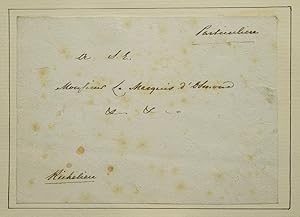 Particulière
à S. E.
Monsieur Le Marquis d'Osmond
&. &.
Richelieu